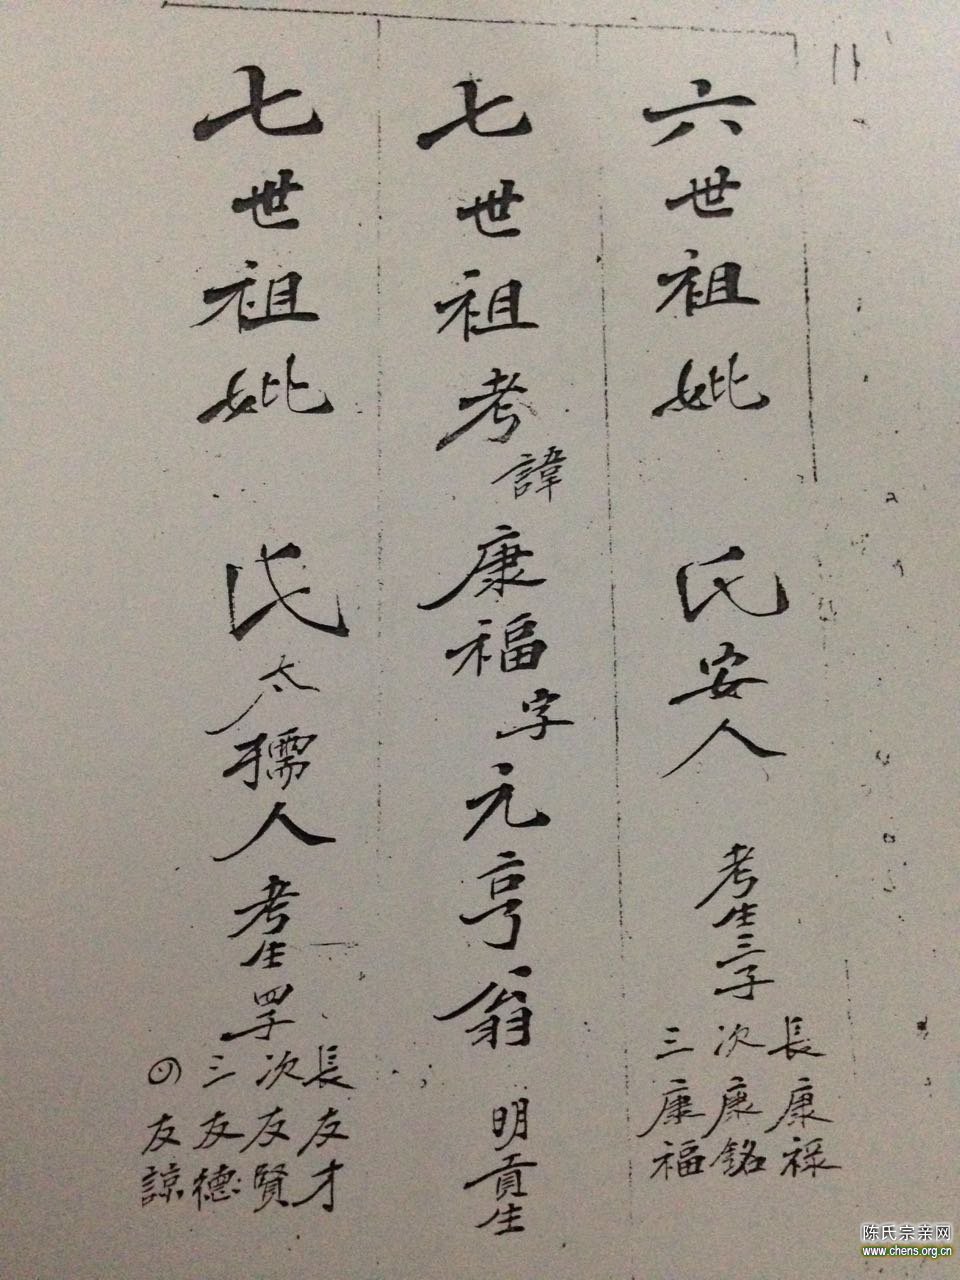 六世祖妣 氏安人 考生三子
長康祿
次康銘
三康福
七世祖考諱康福字元亨翁 明貢生
七世祖妣 氏太孺人 考生四子
長友才
次友賢
三友德
四友諒
陈氏宗亲网
www.chens.org.cn